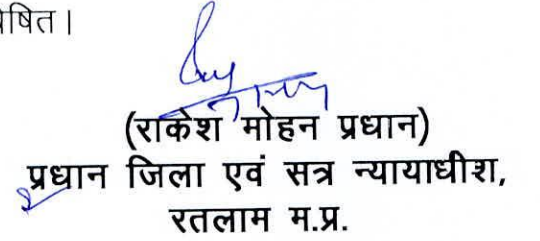 प्रेषित।
(राकेश मोहन प्रधान)
प्रधान जिला एवं सत्र न्यायाधीश,
रतलाम म.प्र.